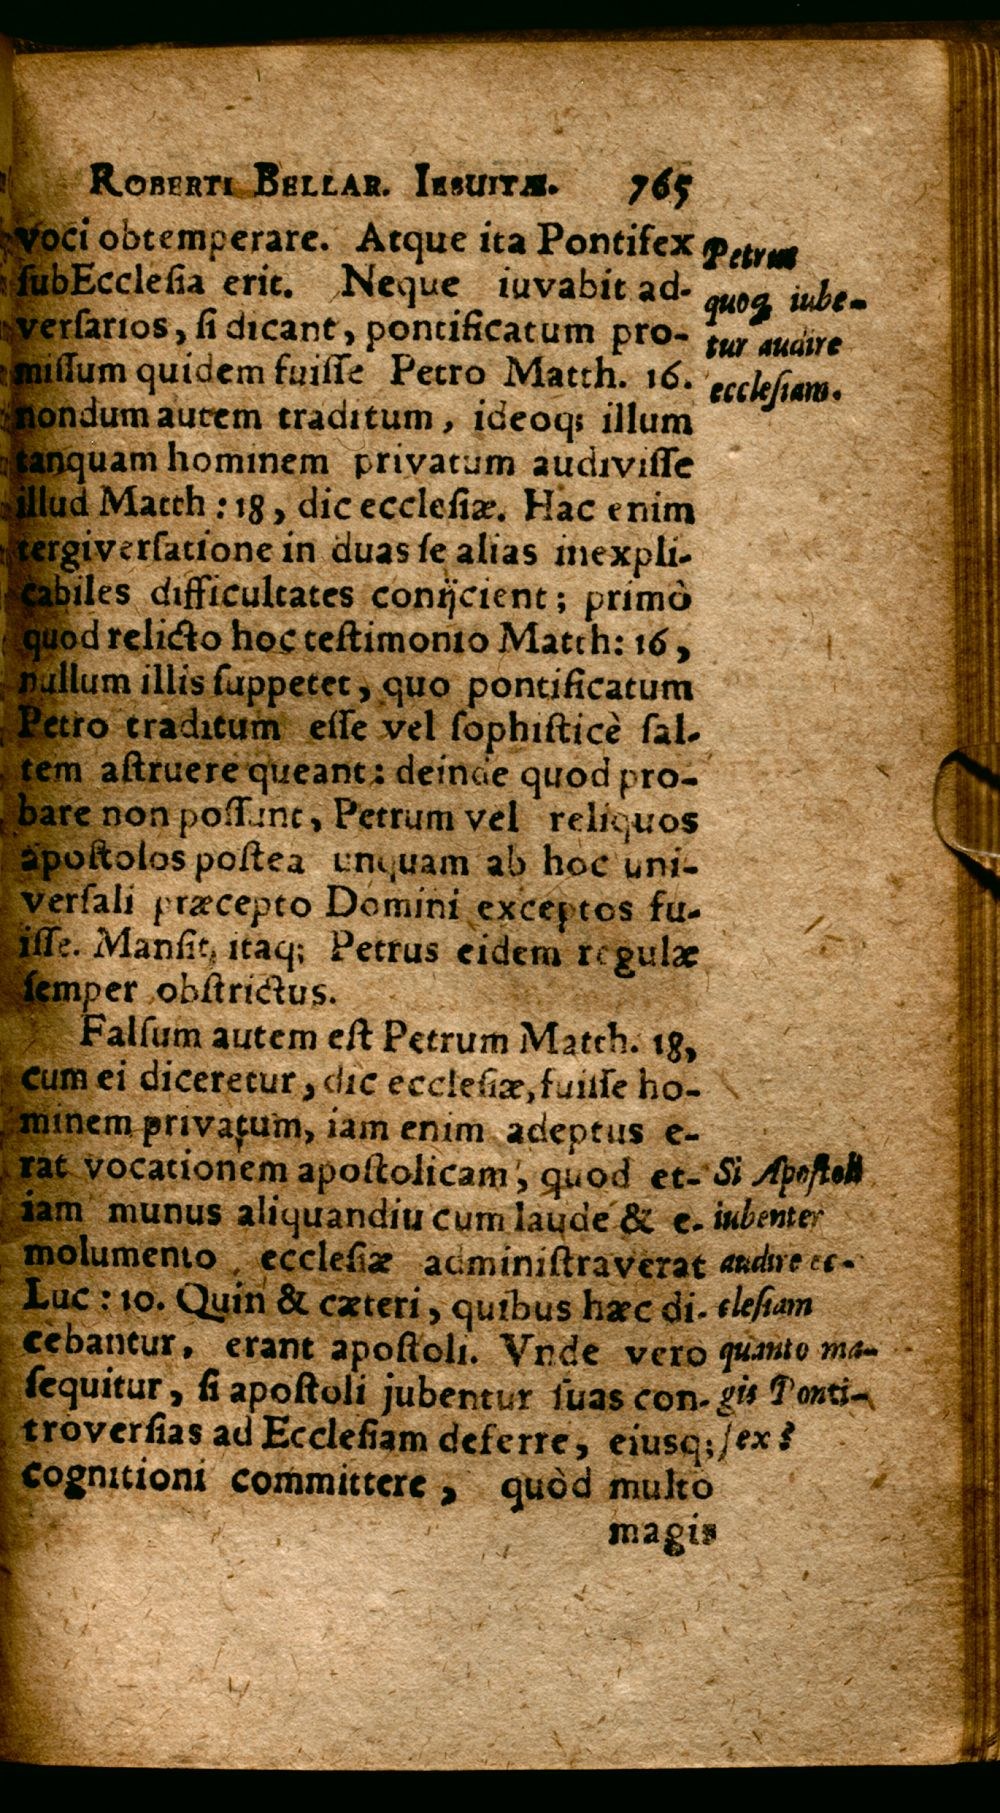 ROBERTI BELLAR. IESUITÆ. 765
voci obtemperare. Atque ita Pontifex
ſubEccleſia erit. Neque iuvabit ad-
verſarios, ſi dicant, pontificatum pro-
miſſum quidem fuiſſe Petro Matth. 16.
nondum autem traditum, ideoq; illum
tanquam hominem privatum audiviſſe
illud Matth : 18, dic eccleſiæ. Hac enim
tergiverſatione in duas ſe alias inexpli-
cabiles difficultates conijcient; primò
quod relicto hoc teſtimonio Matth: 16,
nullum illis ſuppetet, quo pontificatum
Petro traditum eſſe vel ſophiſticè ſal-
tem aſtruere queant: deinde quod pro-
bare non poſſunt, Petrum vel reliquos
apoſtolos poſtea unquam ab hoc uni-
verſali præcepto Domini exceptos fu-
iſſe. Manſit itaq; Petrus eidem regulæ
ſemper obſtrictus.
Falſum autem eſt Petrum Matth. 18,
cum ei diceretur, dic eccleſiæ, fuiſſe ho-
minem privatum, iam enim adeptus e-
rat vocationem apoſtolicam, quod et-
iam munus aliquandiu cum laude & e-
molumento eccleſiæ adminiſtraverat
Luc : 10. Quin & cæteri, quibus hæc di-
cebantur, erant apoſtoli. Vnde vero
ſequitur, ſi apoſtoli jubentur ſuas con-
troverſias ad Eccleſiam deferre, eiusq;
cognitioni committere, quòd multo
magis
Petrus
quoq iube-
tur audire
eccleſiam.
Si Apoſtoli
iubenter
audire ec-
cleſiam
quanto ma-
gis Ponti-
fex?